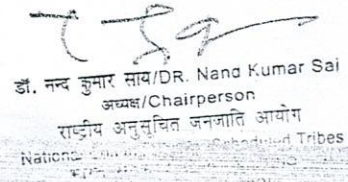 डॉ. नन्द कुमार साय/DR. Nand Kumar Sai
अध्यक्ष/Chairperson
राष्ट्रीय अनुसूचित जनजाति आयोग
National Scheduled Tribes